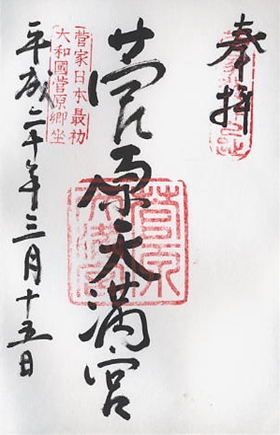 奉拝
菅原天満宮
菅原天満宮
菅家日本最初
大和國菅原郷坐
平成二十年三月十五日